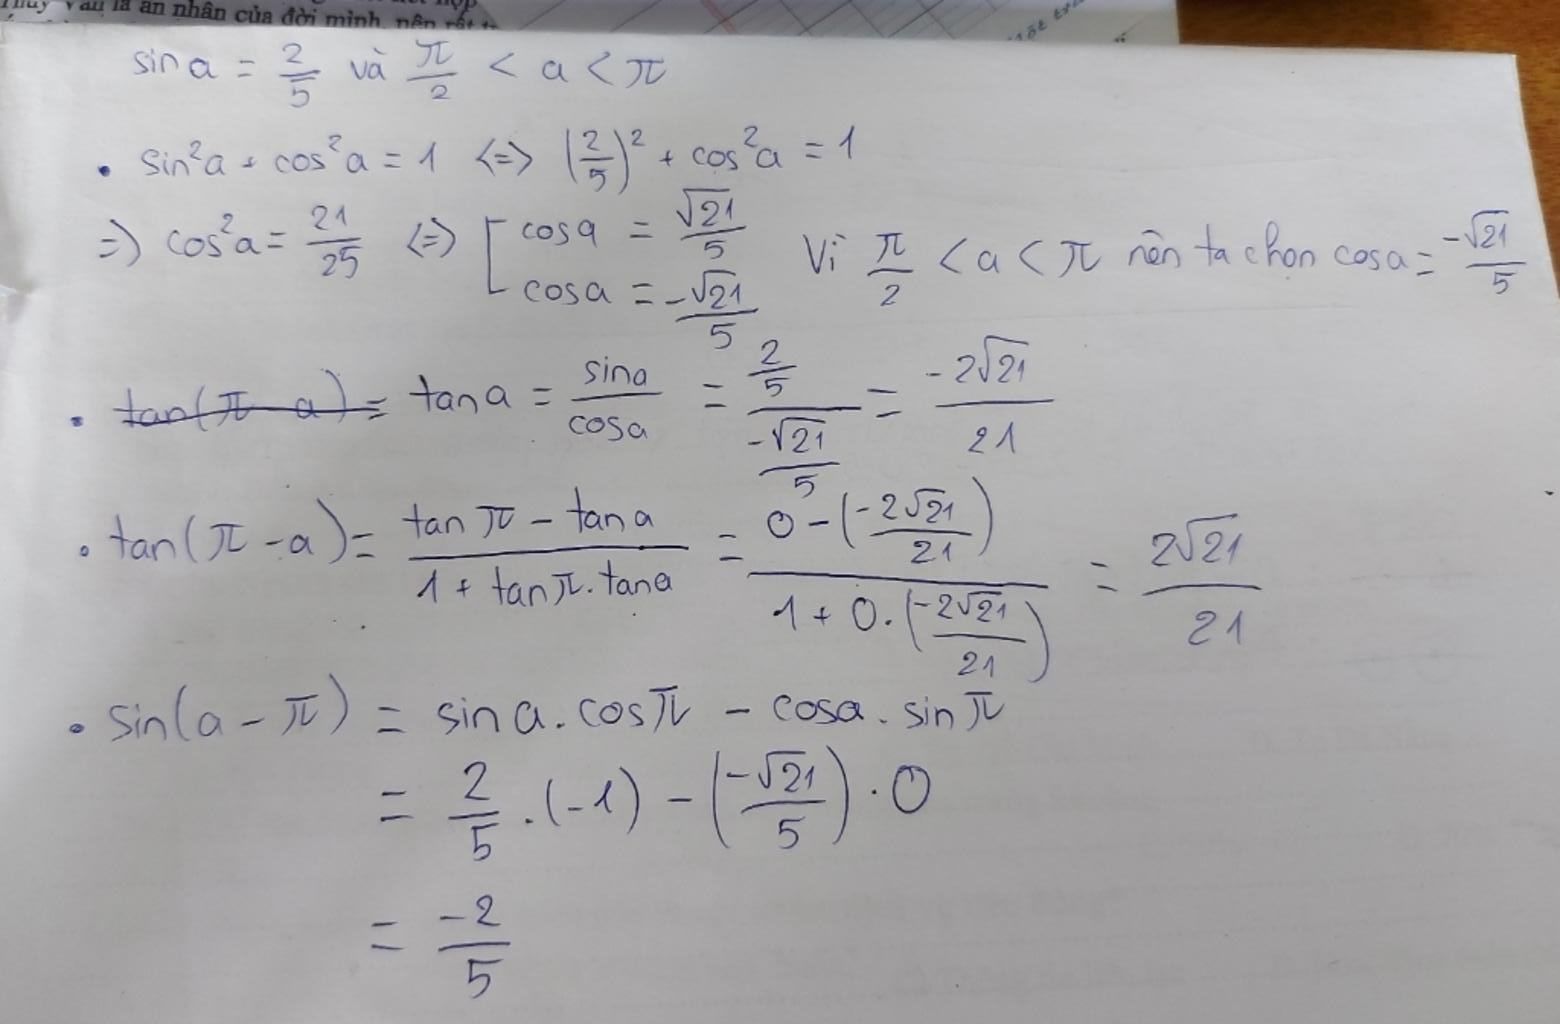 Thúy Vân là ân nhân của đời mình, nên rất
sin a = 2/5 và π/2 < a < π
• sin²a + cos²a = 1 <=> (2/5)² + cos²a = 1
=> cos²a = 21/25 <=> [ cosa = √21/5
cosa = -√21/5
Vì π/2 < a < π nên ta chọn cosa = -√21/5
• tan(π - a) = tan a = sina/cosa = (2/5)/(-√21/5) = -2√21/21
• tan(π - a) = (tan π - tan a)/(1 + tanπ.tana) = (0 - (-2√21/21))/(1 + 0.(-2√21/21)) = 2√21/21
• sin(a - π) = sin a . cosπ - cosa . sin π
= 2/5 . (-1) - (-√21/5) . 0
= -2/5